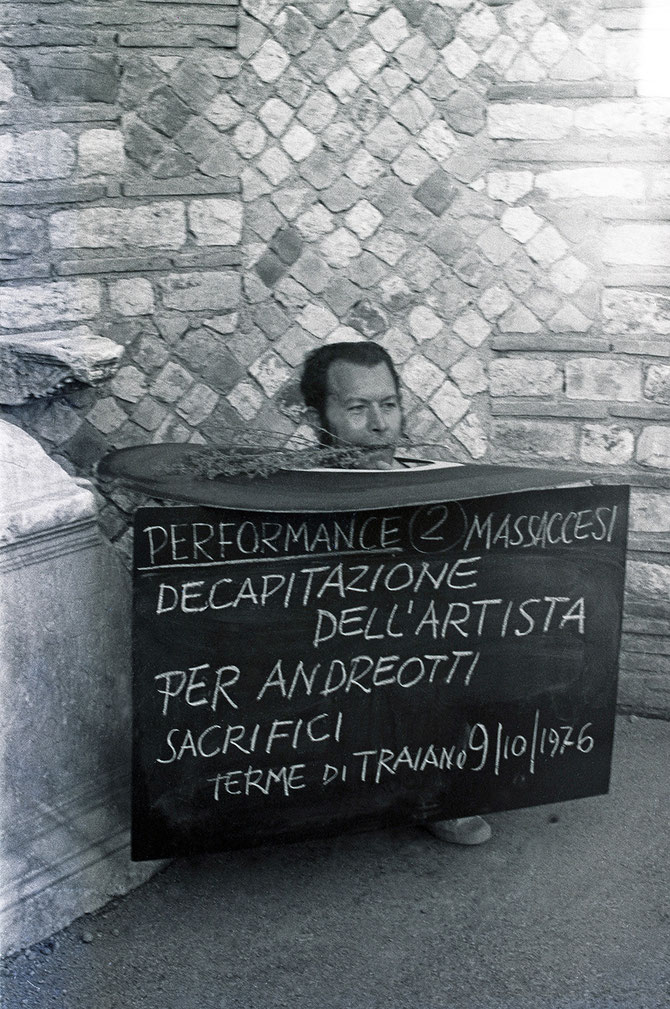 PERFORMANCE 2 MASSACCESI
DECAPITAZIONE
DELL'ARTISTA
PER ANDREOTTI
SACRIFICI
TERME DI TRAIANO 9/10/1976